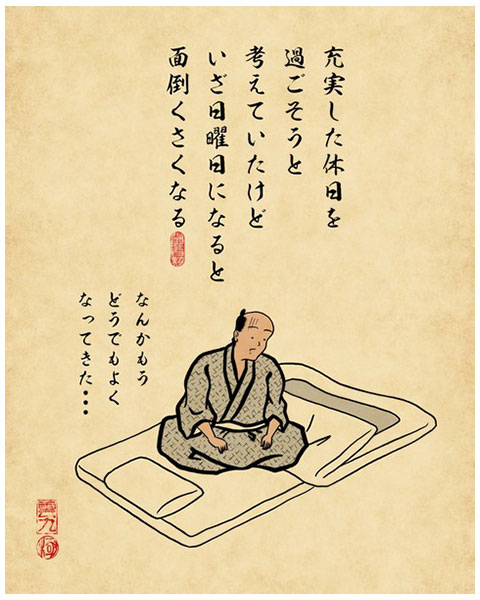 充実した休日を
過ごそうと
考えていたけど
いざ日曜日になると
面倒くさくなる
なんかもう
どうでもよく
なってきた・・・